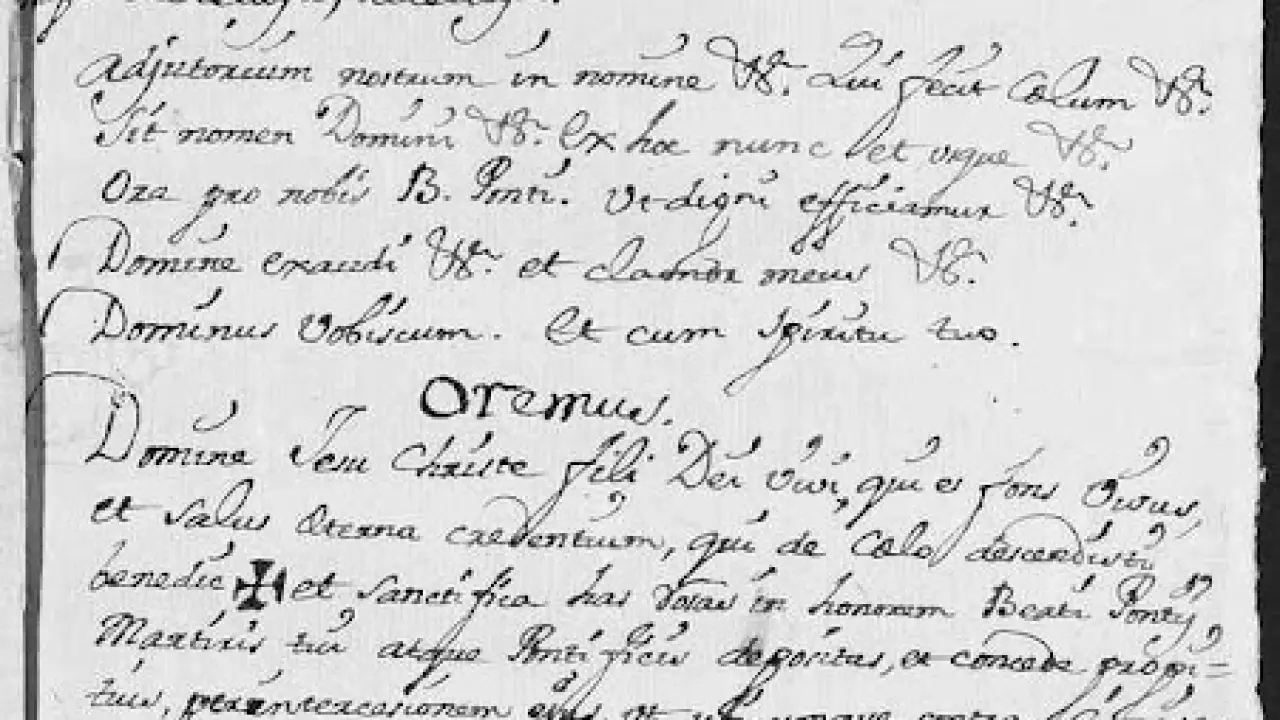 Adjutorium nostrum in nomine &c. Qui fecit Cælum &c.
Sit nomen Domini &c. Ex hoc nunc et usque &c.
Ora pro nobis B. Ponti. Ut digni efficiamur &c.
Domine exaudi &c. et clamor meus &c.
Dominus Vobiscum. Et cum spiritu tuo.
Oremus.
Domine Jesu Christe fili Dei Vivi, qui es fons Vivus,
et salus æterna credentium, qui de Cælo descendisti
benedic ✠ et sanctifica has Rosas in honorem Beati Pontij
Martiris tui atque Pontificis depositas, et concede propi=
tius, per intercesionem ejus, ut contra